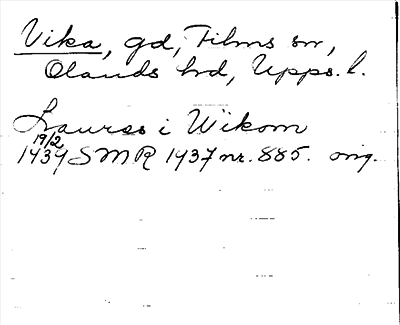 Vika, gd, Films sn,
Olands hd, Upps. l.
Laurss i Wikom
19/2
1439 SMR 1437 nr. 885. orig.